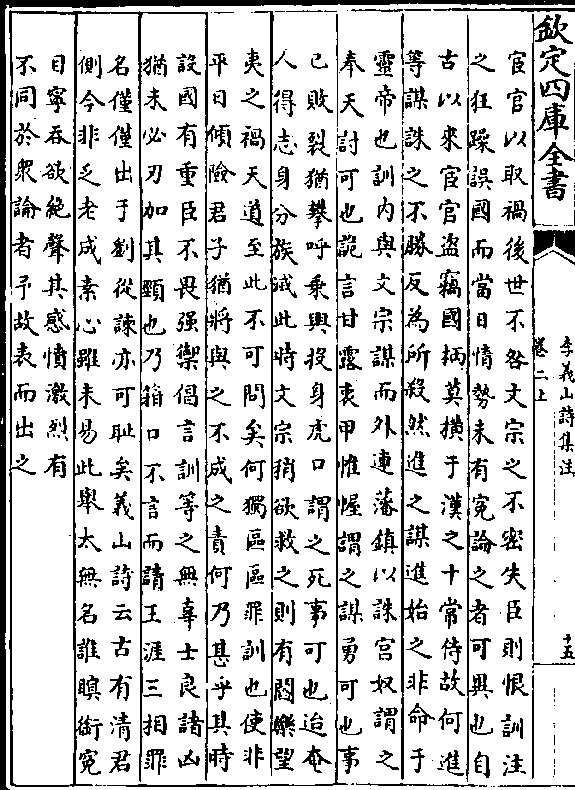 欽定四庫全書
李義山詩集注
卷二上
十五
宦官以取禍後世不咎文宗之不密失臣則恨訓注
之狂躁誤國而當日情勢未有寃論之者可異也自
古以來宦官盜竊國柄莫横于漢之十常侍故何進
等謀誅之不勝反為所殺然進之謀進始之非命于
靈帝也訓内與文宗謀而外連藩鎮以誅宫奴謂之
奉天討可也詭言甘露衷甲帷幄謂之謀勇可也事
已敗裂猶攀呼乗輿投身虎口謂之死事可也迨奄
人得志身分族滅此時文宗稍欲救之則有閻樂望
夷之禍天道至此不可問矣何獨區區罪訓也使非
平日傾險君子猶將與之不成之責何乃甚乎其時
設國有重臣不畏强禦倡言訓等之無辜士良諸凶
猶未必刃加其頸也乃籍口不言而請王涯三相罪
名僅僅出于劉從諫亦可耻矣義山詩云古有清君
側今非乏老成素心雖未易此舉太無名誰瞑銜寃
目寧吞欲絶聲其感憤激烈有
不同於衆論者予故表而出之